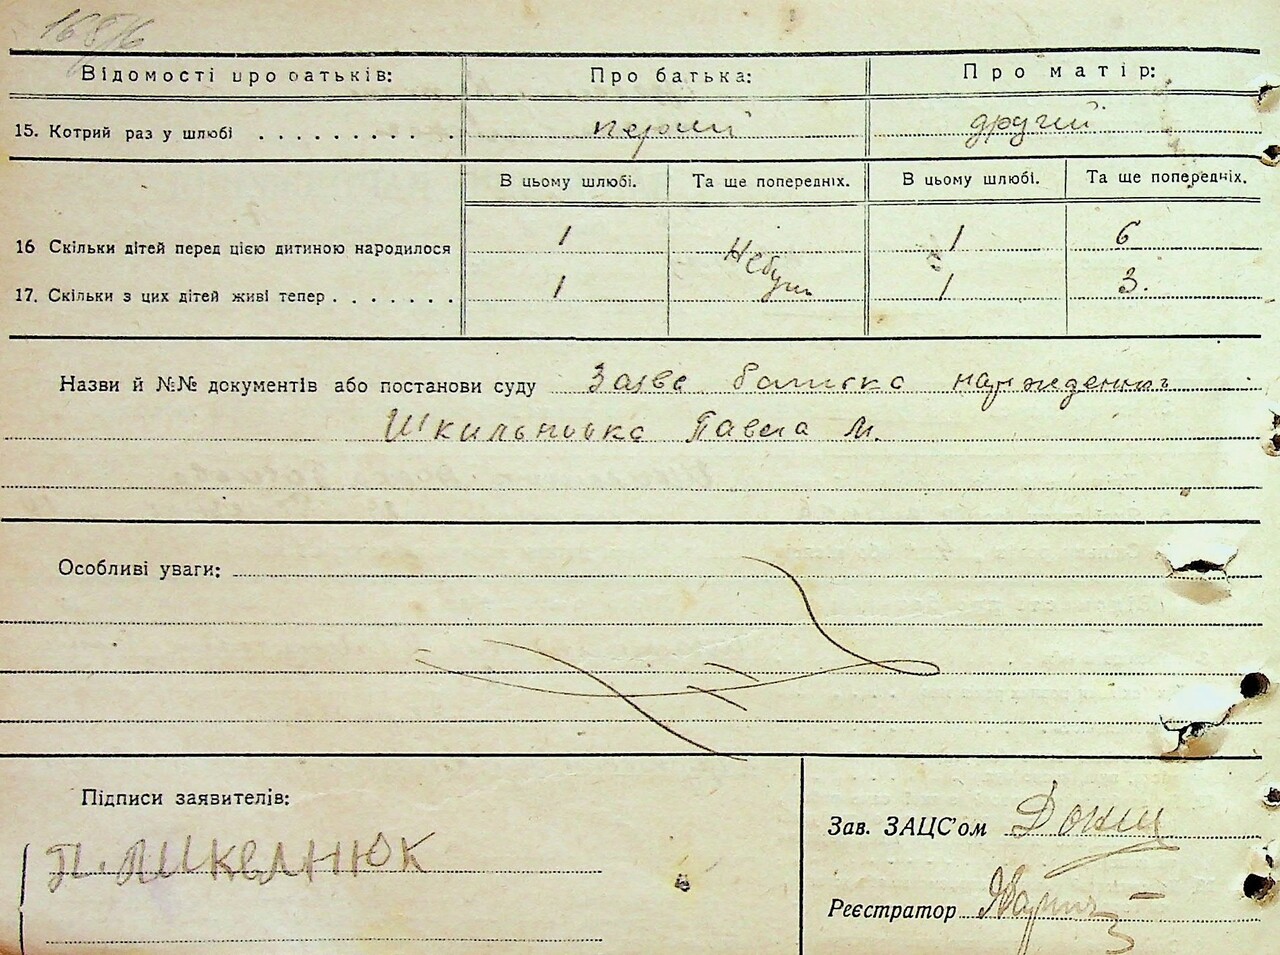 168/6
Відомості про батьків: Про батька: Про матір:
15. Котрий раз у шлюбі . . . . . . . . . . перший другий
В цьому шлюбі. Та ще попередніх. В цьому шлюбі. Та ще попередніх.
16 Скільки дітей перед цією дитиною народилося 1 1 6
17. Скільки з цих дітей живі тепер . . . . . . . 1 1 3.
Назви й №№ документів або постанови суду Заява
Павла М.
Особливі уваги:
Підписи заявителів:
Зав. ЗАЦС'ом
П.
Реєстратор